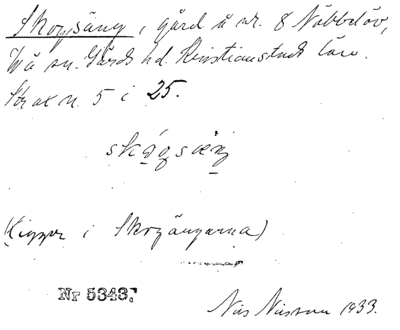 Skogsäng, gård å nr. 8 Nöbbelöv,
Vä sn. Gärds hd. Kristianstads län.
Strax n. 5 i 25.
skógsæ̀ŋ
(Ligger i Skogängarna)
Nr 5343.
Nils Nilsson 1933.